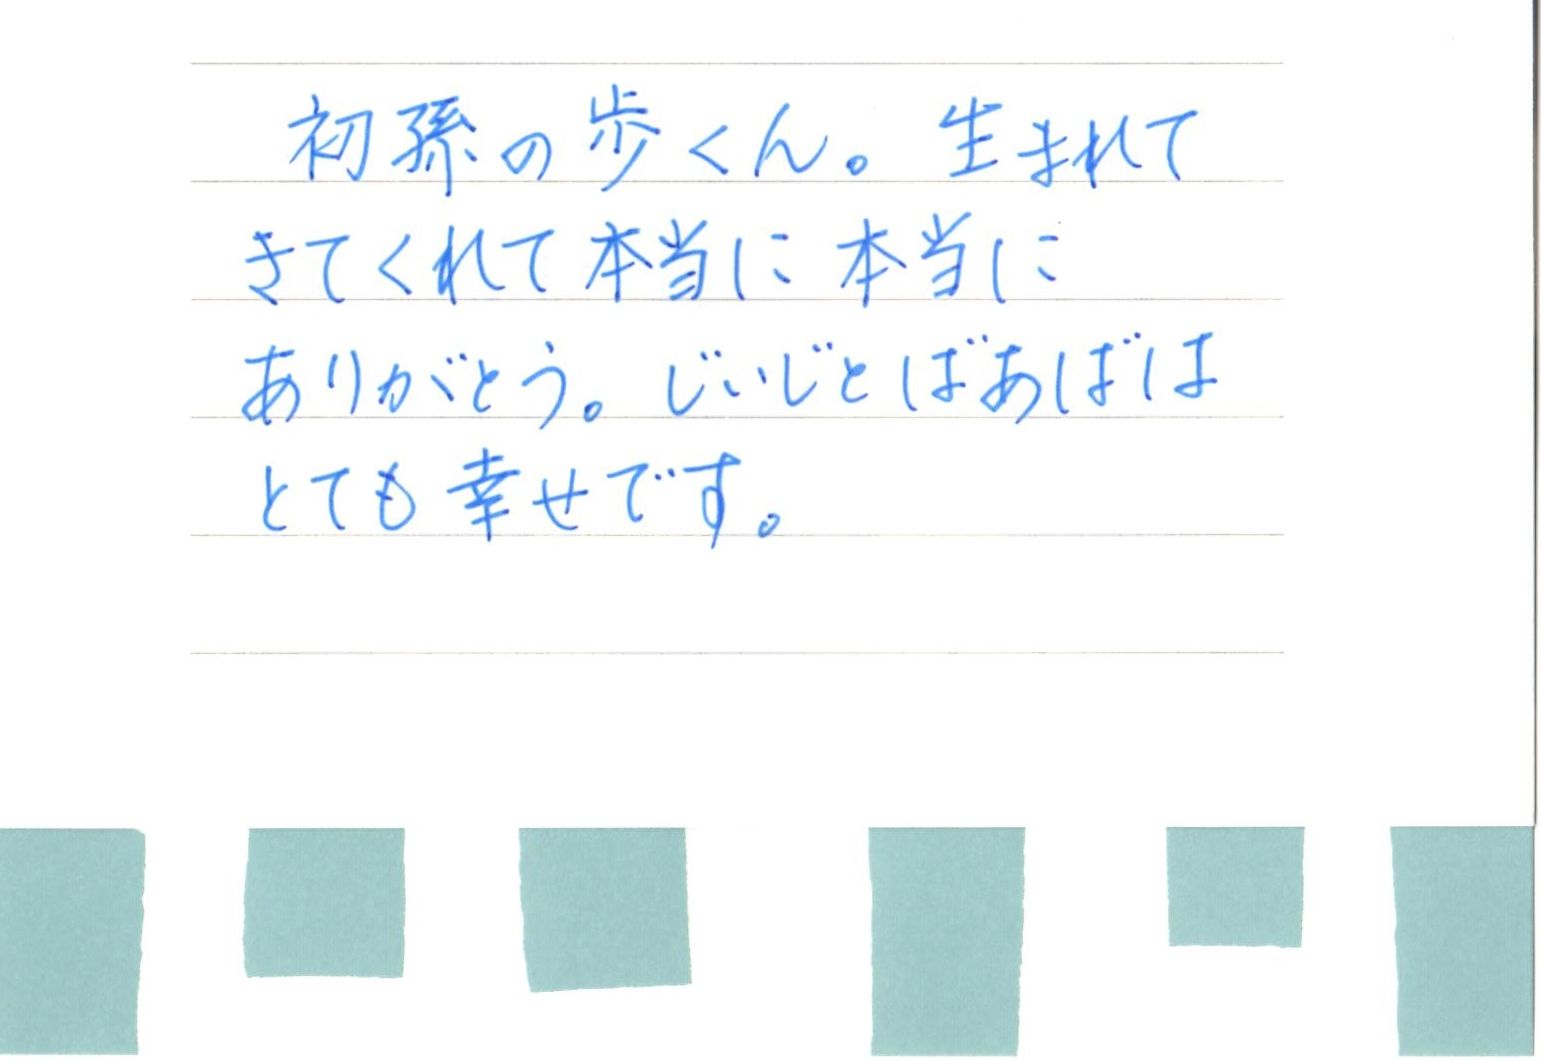 初孫の歩くん。生まれて
きてくれて本当に本当に
ありがとう。じいじとばあばは
とても幸せです。